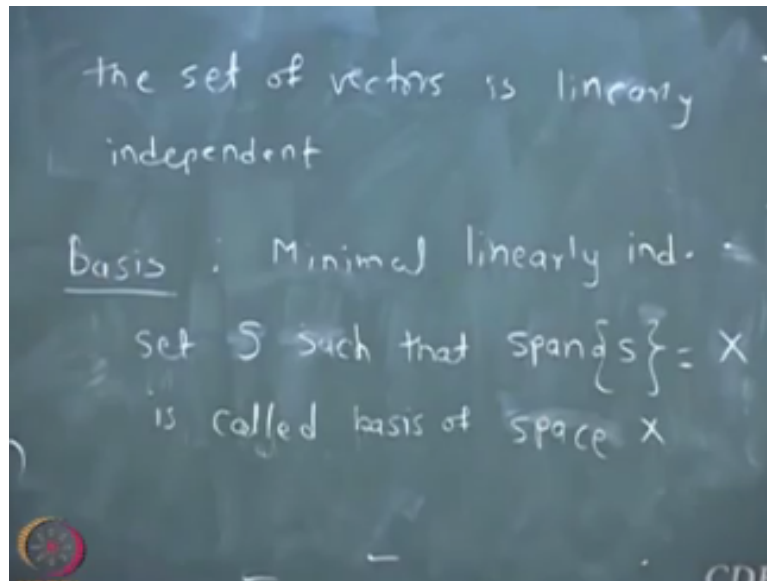 the set of vectors is linearly
independent
Basis : Minimal linearly ind.
set S such that span{S} = X
is called basis of space X